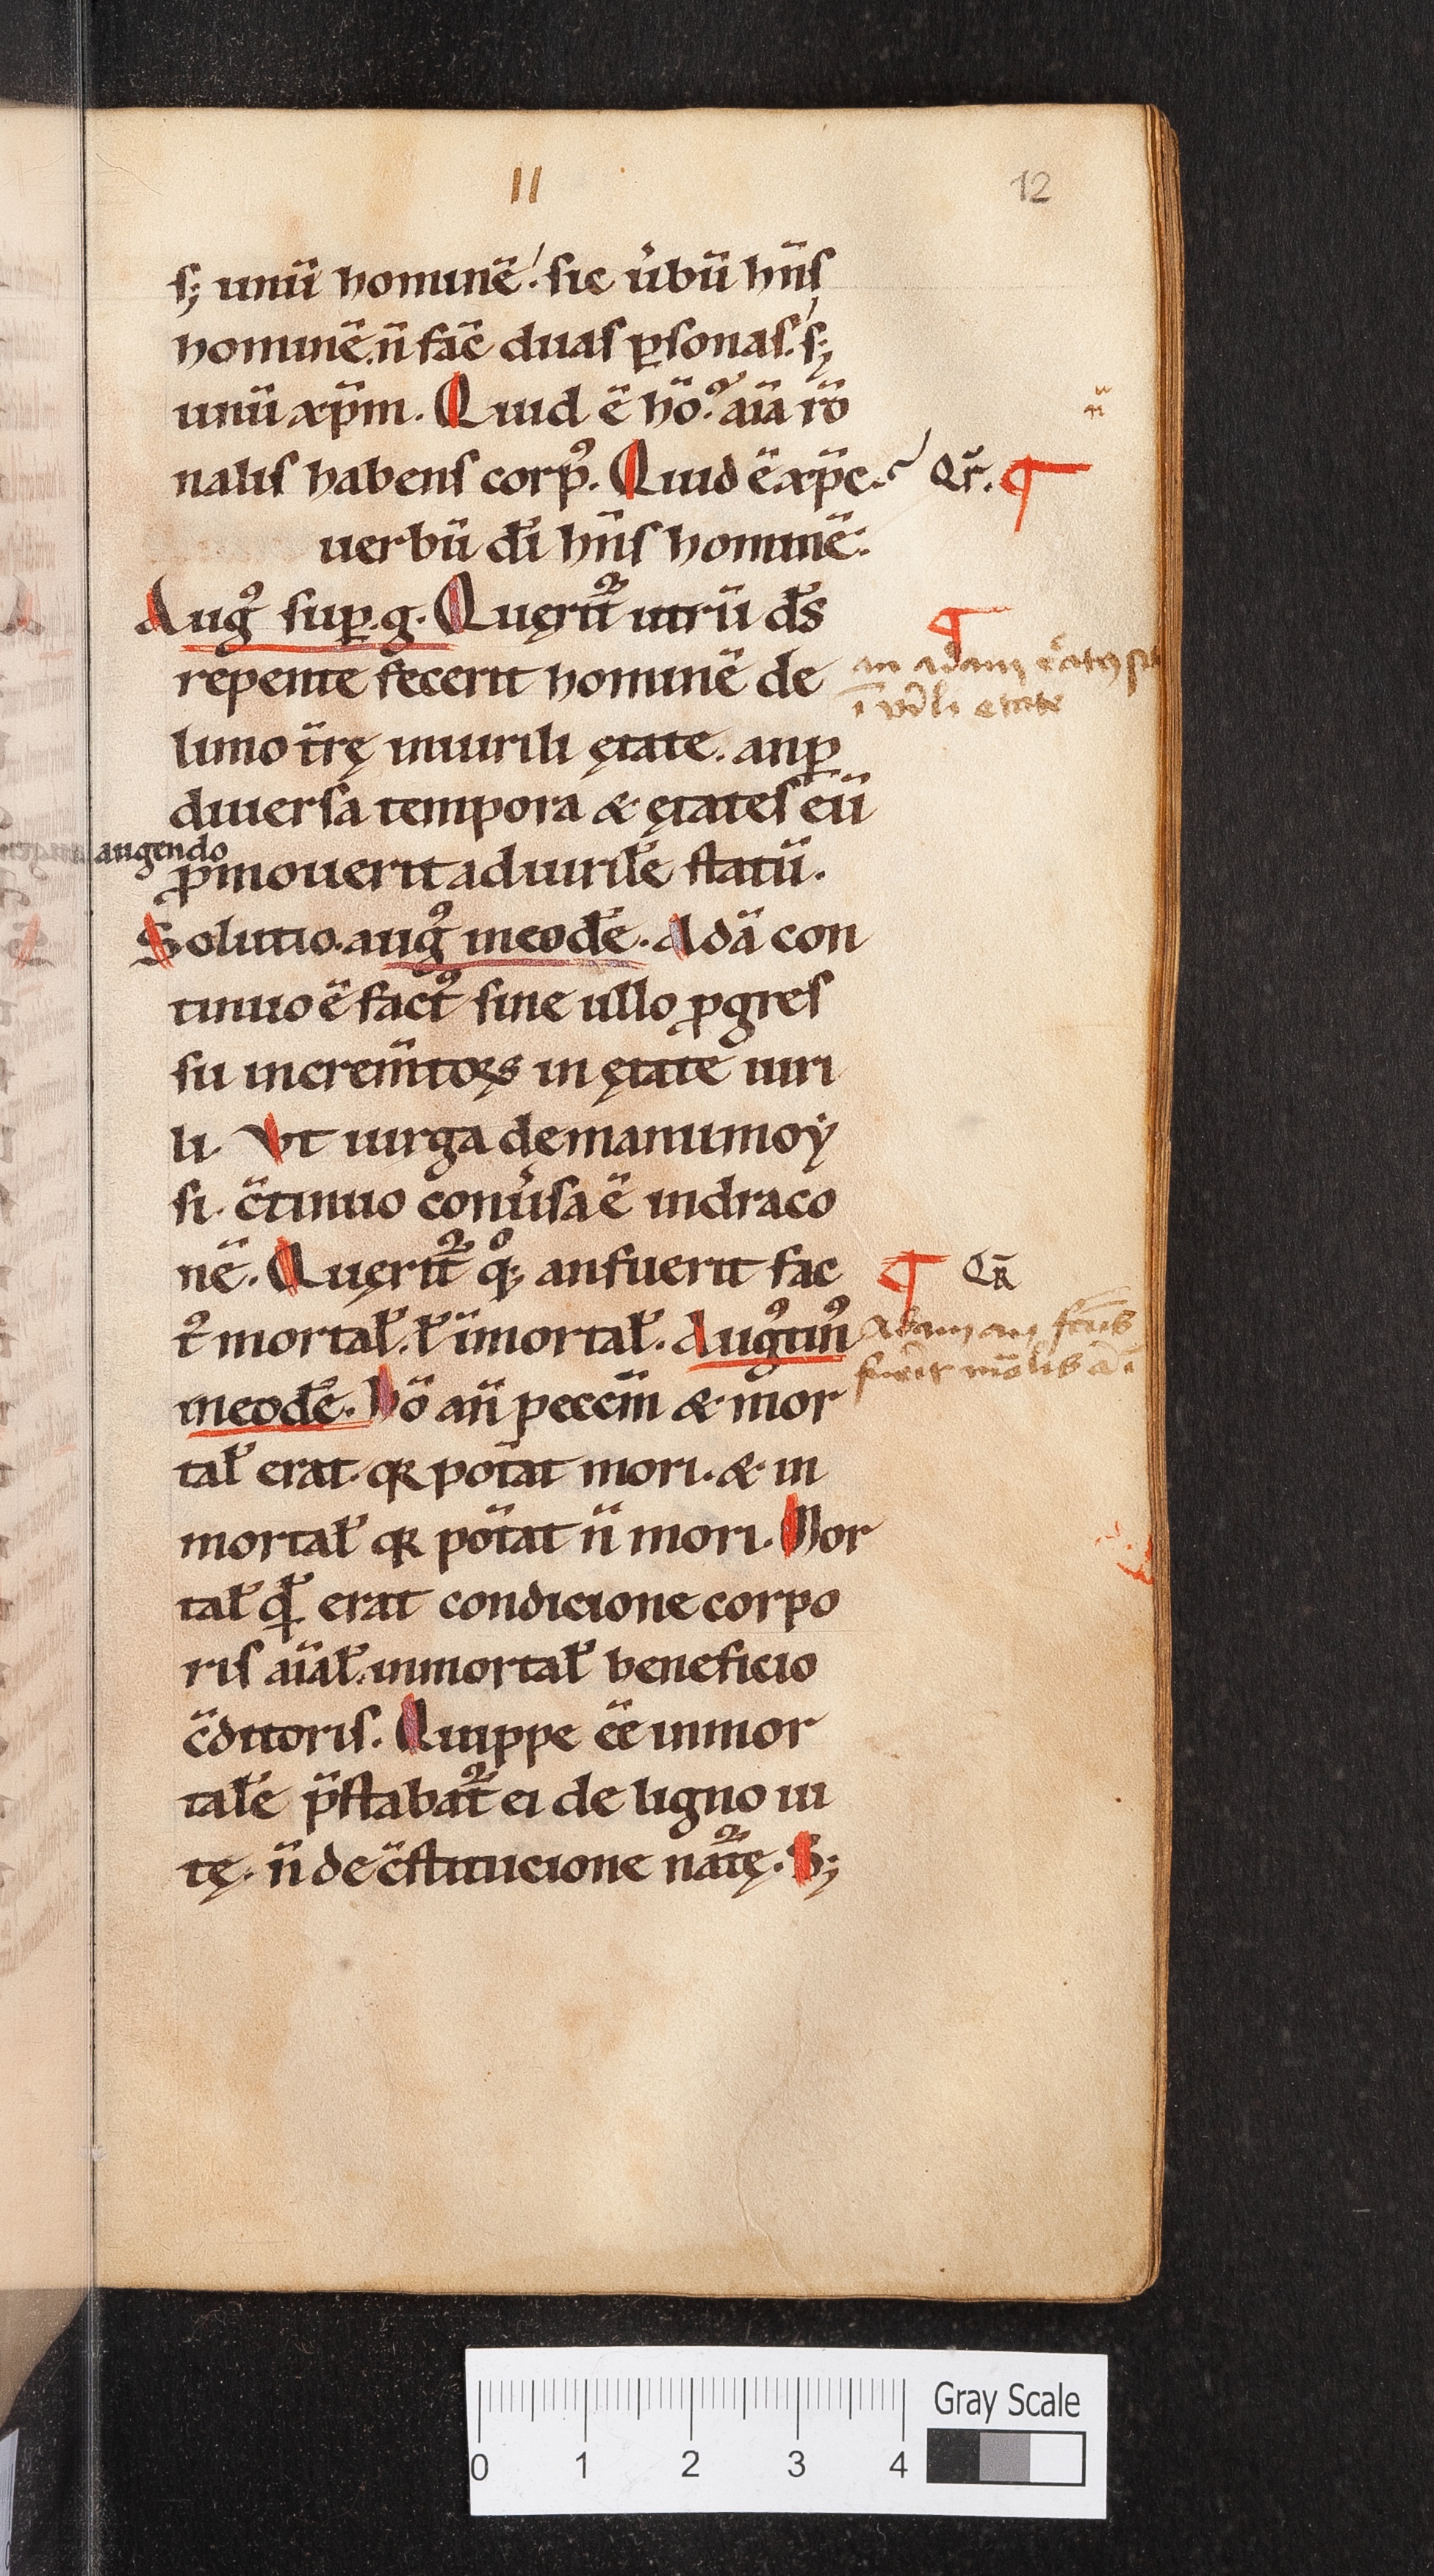 11
12
s; unū hominē. sic u̓bū hn̄s
hominē. n̄ fac̄ duas ꝑsonas. s;
unū xp̄m. Quid ē hō? aīa rō
nalis habens corpꝰ. Quid ē xp̄c. Qr̄. ¶
uerbū dī hn̄s hominē.
Augꝰ suꝑ. g. Quęrit᷑ utrū ds̄
repente fecerit hominē de
an adam
limo tr̄ę inuirili ętate. an ꝑ
diuersa tempora & ętates eū
augendo
ꝓmouerit aduirilē statū.
Solutio. augꝰ ineodē. Adā con
tinuo ē factꝰ sine ullo ꝓgres
su increm̄toꝝ in ętate uiri
li. Vt uirga demanu moẏ
si. c̄tinuo conu̓sa ē indraco
nē. Quęrit᷑ qͦꝫ an fuerit fac
¶ QR̄
tꝰ mortal̄. ł īmortal̄. Augꝰtinꝰ
Adam an
ineodē. Hō an̄ peccm̄ & mor
tal̄ erat. qꝛ pot̄at mori. & in
mortal̄ qꝛ pot̄at n̄ mori. Mor
tal̄ q̄ erat condicione corpo
ris aīal̄. inmortal̄ beneficio
c̄ditoris. Quippe eē inmor
tal̄e p̄stabat᷑ ei de ligno ui
tę. n̄ de c̄stitucione nat᷑ę. S;
Gray Scale
0 1 2 3 4